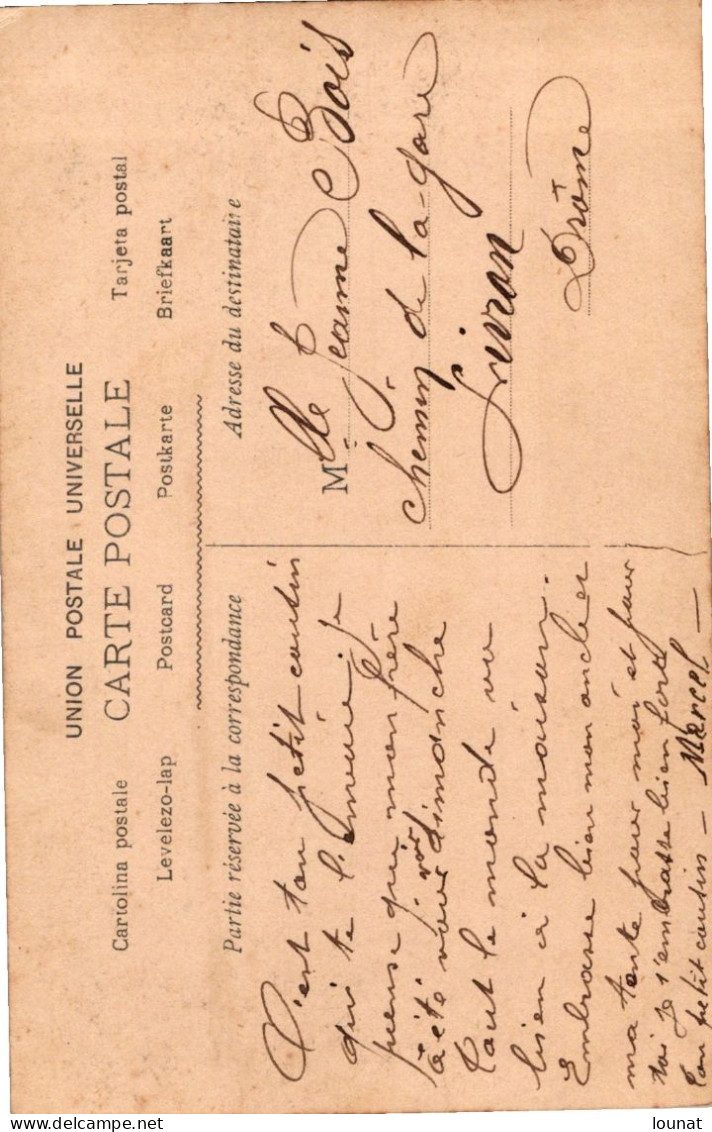 UNION POSTALE UNIVERSELLE
CARTE POSTALE
Cartolina postale
Tarjeta postal
Levelezo-lap Postcard Postkarte Briefkaart
Partie réservée à la correspondance
C'est ton petit cousin
qui te l'envoie. je
pense que mon frère
a été vous voir dimanche
Tout le monde va
bien à la maison.
Embrasse bien mon oncle et
ma tante pour moi et pour
toi je t'embrasse bien fort
ton petit cousin — Marcel —
Adresse du destinataire
Mlle Jeanne Bois
chemin de la gare
Livron
Drôme
delcampe.net
lounat